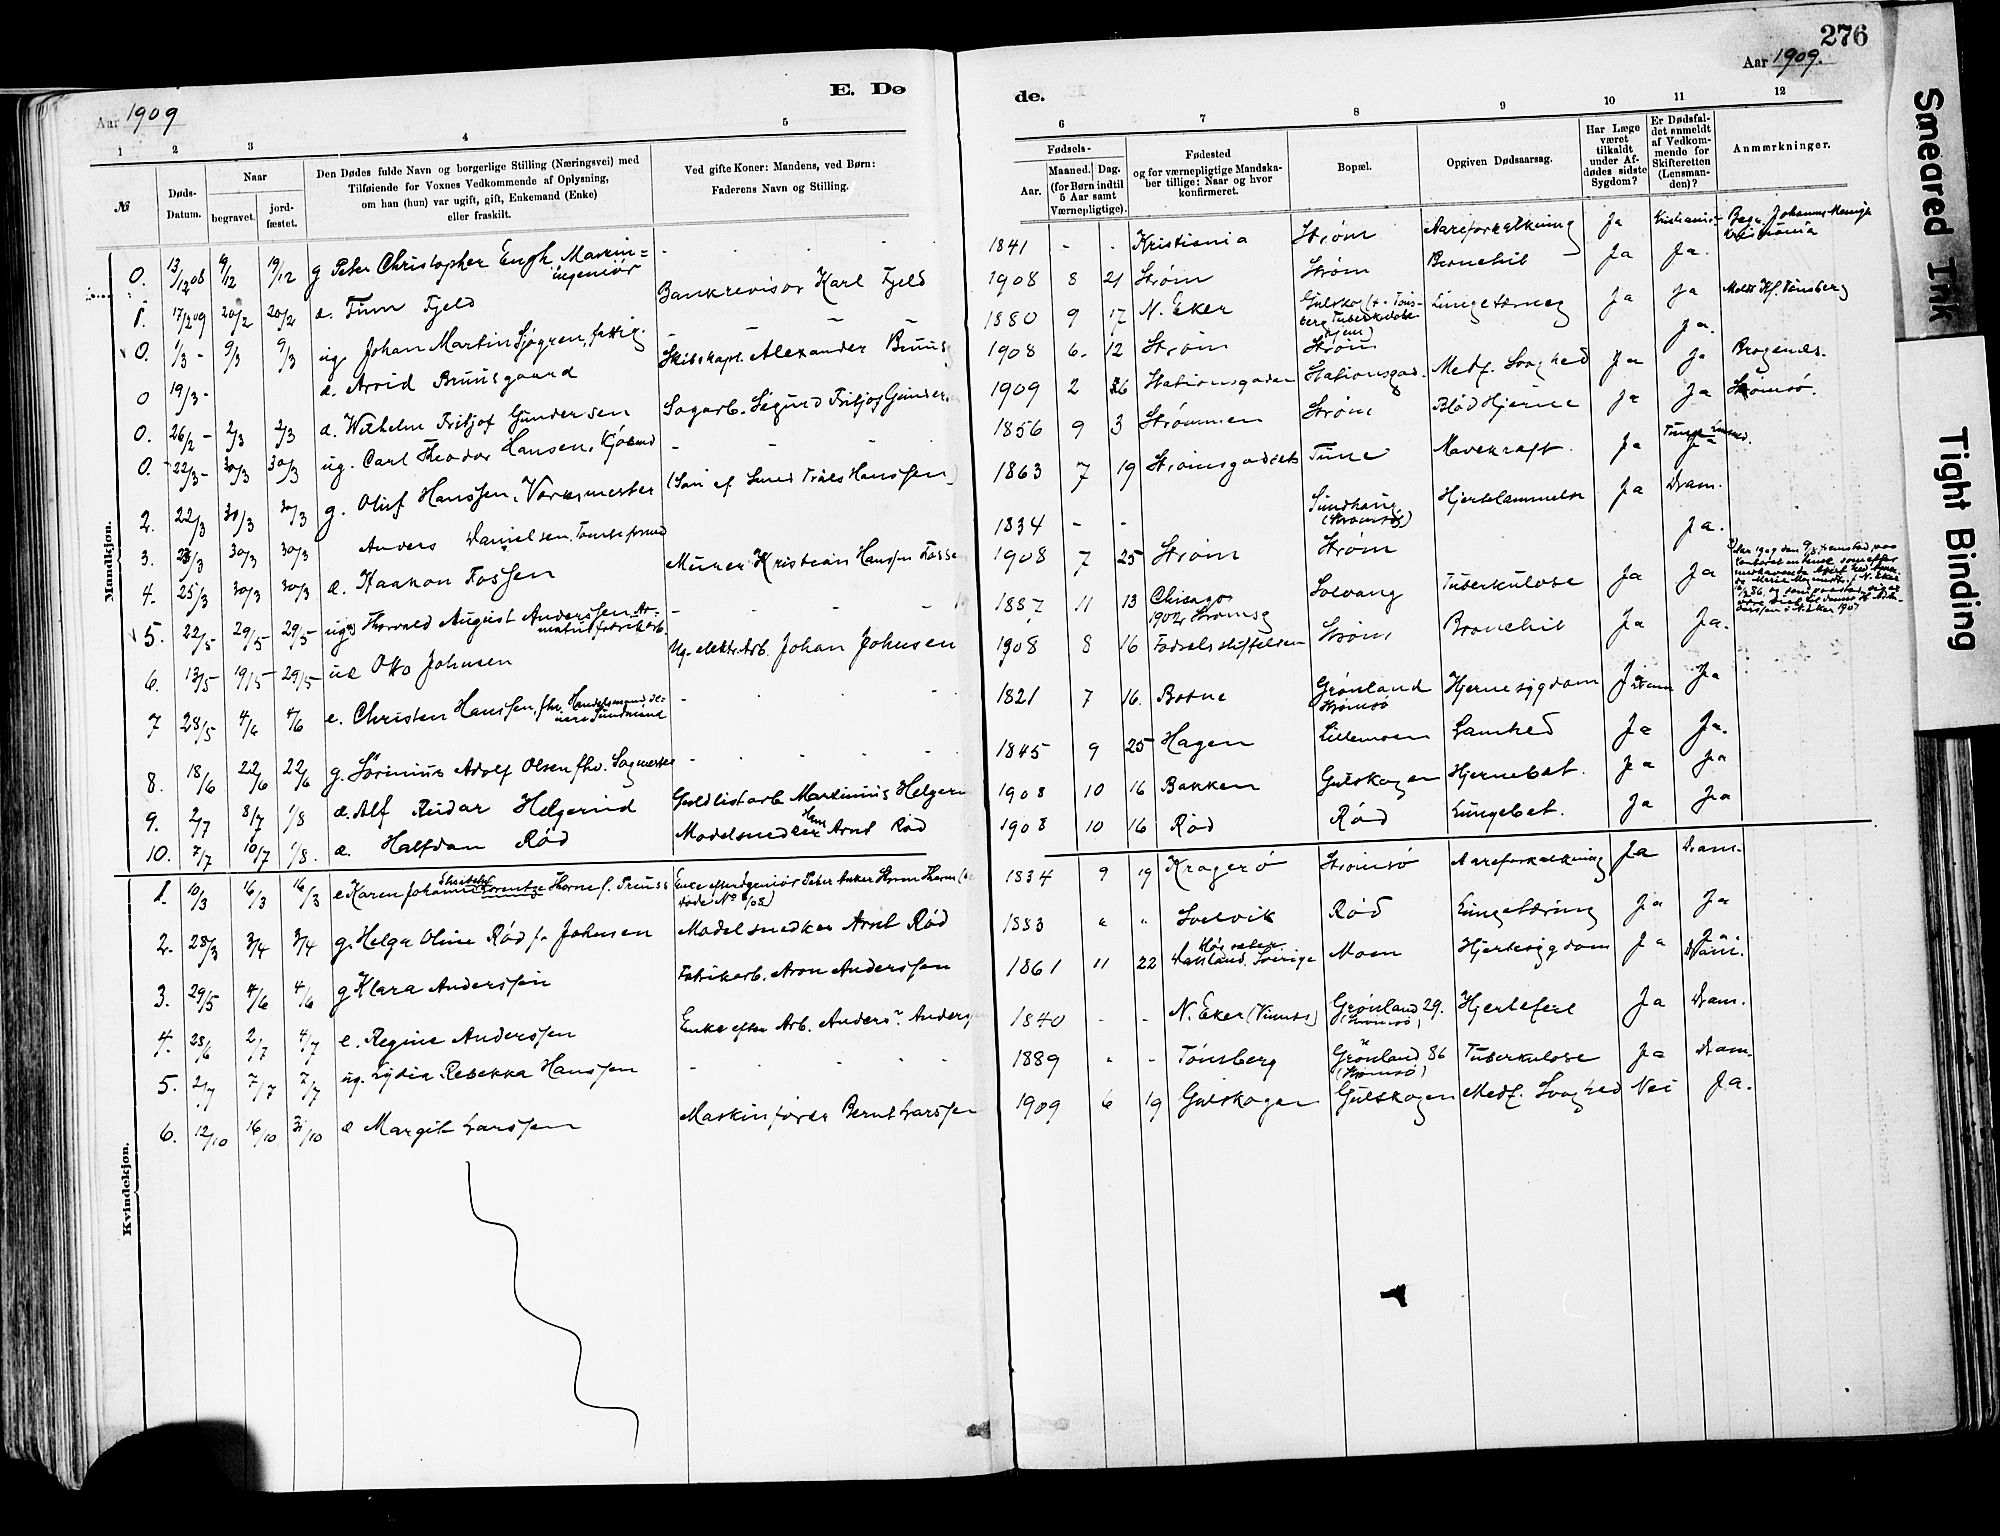 276
Aar 1909
E. Dø
de.
Aar 1909.
1 2 3 4 5 6 7 8 9 10 11 12
№
Døds-
Datum.
Naar
begravet.
jord-
fæstet.
Den Dødes fulde Navn og borgerlige Stilling (Næringsvei) med
Tilføiende for Voxnes Vedkommende af Oplysning,
om han (hun) var ugift, gift, Enkemand (Enke)
eller fraskilt.
Ved gifte Koner: Mandens, ved Børn:
Faderens Navn og Stilling.
Fødsels-
Aar.
Maaned. Dag.
(for Børn indtil
5 Aar samt
Værnepligtige).
Fødested
og for værnepligtige Mandska-
ber tillige: Naar og hvor
konfirmeret.
Bopæl.
Opgiven Dødsaarsag.
Har Læge
været
tilkaldt
under Af-
dødes sidste
Sygdom?
Er Dødsfal-
det anmeldt
af Vedkom-
mende for
Skifteretten
(Lensman-
den)?
Anmærkninger.
Mandkjøn.
0. 13/12 08 9/12 19/12 g Peter Christopher Engh Maskin=
ingeniør - - - 1841 - - Kristiania Strøm Aareforkalkning Ja Kristiania
1. 17/2 09 20/2 20/2 æ. Finn Fjeld Bankrevisor Karl Fjeld 1908 8 21 Strøm Strøm Bronchit Ja Ja.
0. 1/3 - 9/3 9/3 ug. Johan Martin Sjøgren, fattig. - - - - 1880 9 17 N. Eker Lungetæring Ja Ja
0 19/3 - æ. Arvid Bruusgaard Skibskapt. Alexander Bruusg 1908 6. 12 Strøm Strøm Ja.
0. 26/2 - 2/3 2/3 æ. Wilhelm Fritjof Gundersen Sagarb. Sigurd Fritjof Gunders 1909 2 26 Stationsgaden Stationsgad. Medf. Svaghed Ja Ja Bragenæs.
0. 22/3 - 30/3 30/3 ug. Carl Theodor Hansen, - - - 1856 9 3 Strømmen Strøm Blød Hjerne Ja Ja Strømsø.
2. 22/3 30/3 30/3 g. Oluf Hanssen, Værksmester 1863 7 19 Strømsgodset Tune Mavekræft. Ja
3. 23/3 30/3 30/3 Anders Danielsen, 1834 - - Sundhaug
(Strømsø) Hjertelammelse Ja Dram.
4. 25/3 30/3 30/3 æ. Haakon Fossen Murer Kristian Hansen Fosse 1908 7 25 Strøm Strøm Ja.
5. 22/5 29/5 29/5 ug. Thorvald August Anderssen - - - - 1887 11 13 Chicago
1902 Strømsg Solvang Tuberkulose Ja Ja
6. 13/5 19/5 29/5 uæ Otto Johnsen Ug. elektr. Arb. Johan Johnsen 1908 8 16 Fødselsstiftelsen Strøm Bronchit Ja Ja.
7 28/5 4/6 4/6 e. Christen Hanssen, fhv. Handelsmand, - - - - 1821 7 16. Botne Grønland
Strømsø Hjernesygdom Ja Dram Ja
8. 18/6 22/6 22/6 g. Sørinius Adolf Olsen fhv. Sagmester - - - - 1845 9 25 Hagen Lillemoen Lamhed Ja Ja.
9. 2/7 8/7 1/8 æ. Alf Reidar Helgerud Guldlistarb Markinius Helgeru 1908 10 16 Bakken Gulskogen Hjernebet. Ja Ja
10. 7/7 10/7 1/8. æ. Halfdan Rød Modelsnedker Arnt Rød 1908 10 16 Rød Rød Lungebet. Ja Ja
Kvindekjøn.
1. 10/3 16/3 16/3 e Karen Johanne Lorentze Thorne f. Preuss 1834 9 19 Kragerø Strømsø Aareforkalkning Ja Dram.
2. 28/3 3/4 3/4 g. Helga Oline Rød f. Johnsen Modelsnedker Arnt Rød 1883 " " Svelvik Rød Lungetæring Ja Ja
3. 29/5 4/6 4/6 g Klara Anderssen Fabrikarb. Aron Anderssen 1861 11 22 Dalsland. Sverige Moen Hjertesygdom Ja Ja.
Dram.
4. 28/6 2/7 4/7 e. Regine Anderssen Enke efter Arb. Anders Anders 1840 - - N. Eker Grønland 29.
(Strømsø) Hjertefeil Ja Dram.
5. 2/7 7/7 7/7 ug. Lydia Rebekka Hanssen - - - - 1889 " - Tønsberg Grønland 86
(Strømsø) Tuberkulose Ja Dram.
6. 12/10 16/10 31/10 æ Margit Larssen Maskinfører Bernt Larssen 1909 6 19 Gulskogen Gulskogen Medf. Svaghed Nei Ja.
Smeared Ink
Tight Binding